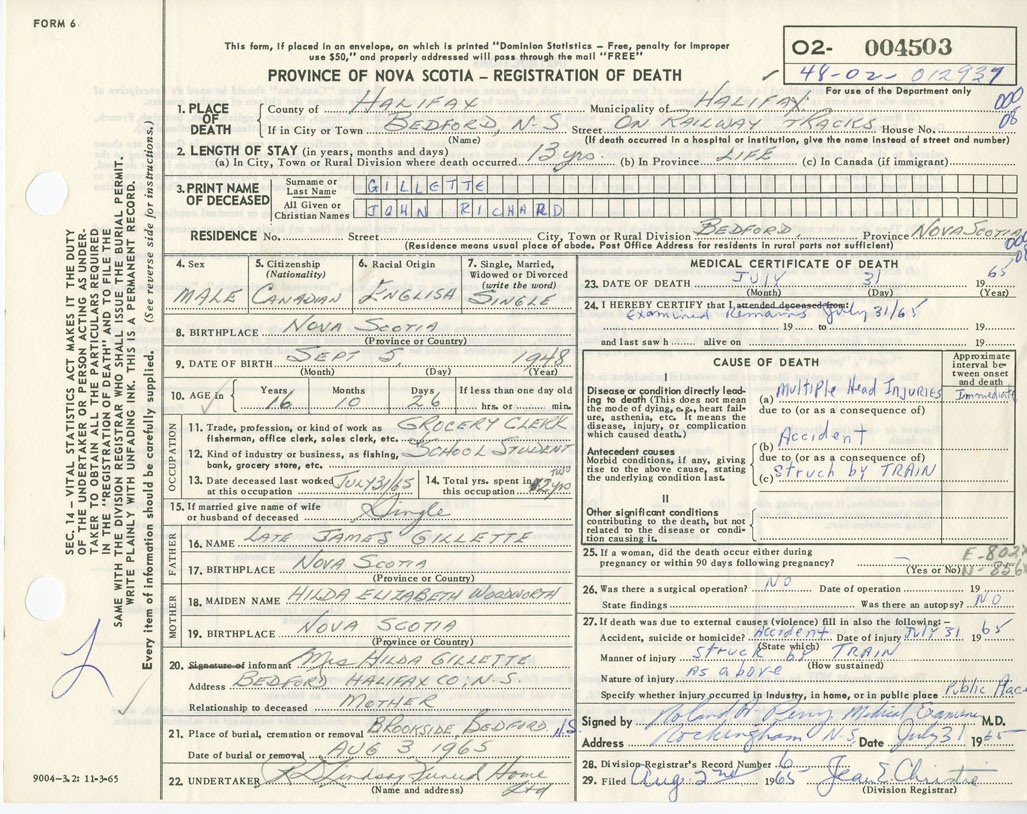 FORM 6
This form, if placed in an envelope, on which is printed "Dominion Statistics – Free, penalty for improper
use $50," and properly addressed will pass through the mail "FREE"
PROVINCE OF NOVA SCOTIA – REGISTRATION OF DEATH
02- 004503
48-02-012937
For use of the Department only
000
08
1. PLACE OF DEATH
County of HALIFAX Municipality of HALIFAX
If in City or Town BEDFORD, N-S Street ON RAILWAY TRACKS House No.
(Name) (If death occurred in a hospital or institution, give the name instead of street and number)
2. LENGTH OF STAY (in years, months and days)
(a) In City, Town or Rural Division where death occurred 13 yrs. (b) In Province LIFE (c) In Canada (if immigrant)
3. PRINT NAME OF DECEASED
Surname or Last Name GILLETTE
All Given or Christian Names JOHN RICHARD
RESIDENCE No. Street City, Town or Rural Division BEDFORD Province NOVA SCOTIA
(Residence means usual place of abode. Post Office Address for residents in rural parts not sufficient)
4. Sex
MALE
5. Citizenship
(Nationality)
CANADIAN
6. Racial Origin
ENGLISH
7. Single, Married,
Widowed or Divorced
(write the word)
SINGLE
8. BIRTHPLACE NOVA SCOTIA
(Province or Country)
9. DATE OF BIRTH SEPT 5, 1948
(Month) (Day) (Year)
10. AGE in Years Months Days If less than one day old
16 10 26 hrs. or min.
OCCUPATION
11. Trade, profession, or kind of work as GROCERY CLERK
fisherman, office clerk, sales clerk, etc.
12. Kind of industry or business, as fishing, SCHOOL STUDENT
bank, grocery store, etc.
13. Date deceased last worked at this occupation JULY 31/65
14. Total yrs. spent in this occupation TWO 2 yrs
15. If married give name of wife
or husband of deceased Single
FATHER
16. NAME LATE JAMES GILLETTE
17. BIRTHPLACE NOVA SCOTIA
(Province or Country)
MOTHER
18. MAIDEN NAME HILDA ELIZABETH WOODWORTH
19. BIRTHPLACE NOVA SCOTIA
(Province or Country)
20. Signature of informant Mrs HILDA GILLETTE
Address BEDFORD HALIFAX CO, N.S.
Relationship to deceased MOTHER
21. Place of burial, cremation or removal BROOKSIDE BEDFORD N.S.
Date of burial or removal AUG 3 1965
22. UNDERTAKER Lindsay Funeral Home
Ltd
(Name and address)
MEDICAL CERTIFICATE OF DEATH
23. DATE OF DEATH JULY 31 1965
(Month) (Day) (Year)
24. I HEREBY CERTIFY that I attended deceased from:
Examined Remains July 31/65
19 to 19
and last saw h alive on 19
CAUSE OF DEATH
Approximate
interval be-
tween onset
and death
I
Disease or condition directly lead-
ing to death (This does not mean
the mode of dying, e.g., heart fail-
ure, asthenia, etc. It means the
disease, injury, or complication
which caused death.)
(a) Multiple Head INJURIES Immediate
due to (or as a consequence of)
Antecedent causes
Morbid conditions, if any, giving
rise to the above cause, stating
the underlying condition last.
(b) Accident
due to (or as a consequence of)
(c) Struck by TRAIN
II
Other significant conditions
contributing to the death, but not
related to the disease or condi-
tion causing it.
25. If a woman, did the death occur either during
pregnancy or within 90 days following pregnancy?
(Yes or No)
E-802X
N-856X
26. Was there a surgical operation? NO Date of operation 19
State findings Was there an autopsy? NO
27. If death was due to external causes (violence) fill in also the following: –
Accident, suicide or homicide? Accident Date of injury JULY 31 1965
(State which)
Manner of injury STRUCK by TRAIN
(How sustained)
Nature of injury As above
Specify whether injury occurred in industry, in home, or in public place Public Place
Signed by Roland H Perry Medical Examiner M.D.
Address Rockingham N.S. Date July 31 1965
28. Division Registrar's Record Number 6
29. Filed Aug. 2nd 1965 Jean E Christie
(Division Registrar)
SEC. 14 – VITAL STATISTICS ACT MAKES IT THE DUTY
OF THE UNDERTAKER OR PERSON ACTING AS UNDER-
TAKER TO OBTAIN ALL THE PARTICULARS REQUIRED
IN THE "REGISTRATION OF DEATH" AND TO FILE THE
SAME WITH THE DIVISION REGISTRAR WHO SHALL ISSUE THE BURIAL PERMIT.
WRITE PLAINLY WITH UNFADING INK. THIS IS A PERMANENT RECORD.
Every item of information should be carefully supplied. (See reverse side for instructions.)
9004-3.2: 11-3-65